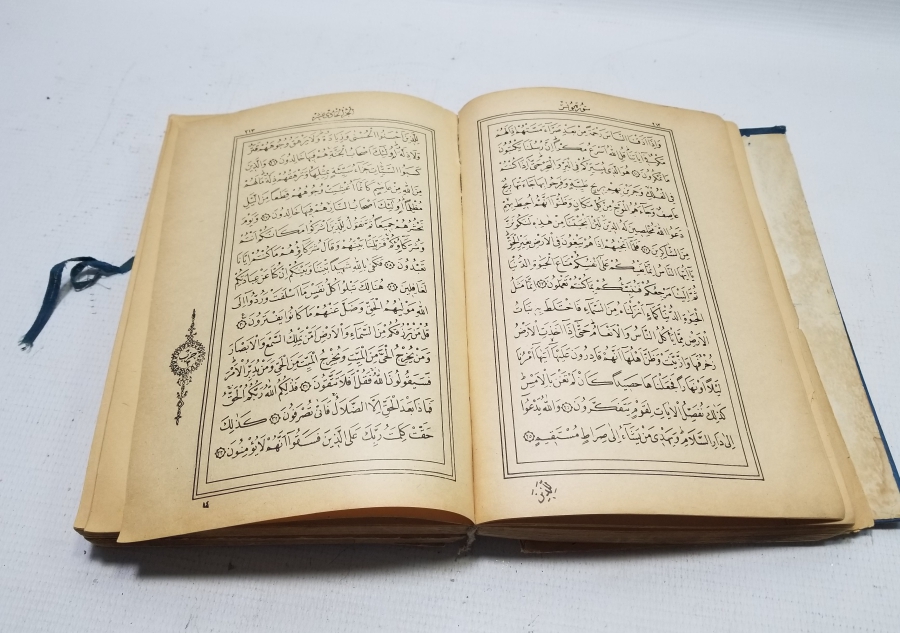 سورة يونس
وَاِذَٓا اَذَقْنَا النَّاسَ رَحْمَةً مِنْ بَعْدِ ضَرَّٓاءَ مَسَّتْهُمْ اِذَا لَهُمْ
مَكْرٌ فِٓي اٰيَاتِنَا قُلِ اللّٰهُ اَسْرَعُ مَكْرًا اِنَّ رُسُلَنَا يَكْتُبُونَ
مَا تَمْكُرُونَ ﴿٢١﴾ هُوَ الَّذِي يُسَيِّرُكُمْ فِي الْبَرِّ وَالْبَحْرِ حَتّٰٓى اِذَا كُنْتُمْ
فِي الْفُلْكِ وَجَرَيْنَ بِهِمْ بِرِيحٍ طَيِّبَةٍ وَفَرِحُوا بِهَا جَٓاءَتْهَا رِيحٌ
عَاصِفٌ وَجَٓاءَهُمُ الْمَوْجُ مِنْ كُلِّ مَكَانٍ وَظَنُّٓوا اَنَّهُمْ اُحِيطَ بِهِمْ
دَعَوُا اللّٰهَ مُخْلِصِينَ لَهُ الدِّينَ لَئِنْ اَنْجَيْتَنَا مِنْ هٰذِهِ لَنَكُونَنَّ
مِنَ الشَّاكِرِينَ ﴿٢٢﴾ فَلَمَّٓا اَنْجٰيهُمْ اِذَا هُمْ يَبْغُونَ فِي الْاَرْضِ بِغَيْرِ الْحَقِّ
يَٓا اَيُّهَا النَّاسُ اِنَّمَا بَغْيُكُمْ عَلٰٓى اَنْفُسِكُمْ مَتَاعَ الْحَيٰوةِ الدُّنْيَا
ثُمَّ اِلَيْنَا مَرْجِعُكُمْ فَنُنَبِّئُكُمْ بِمَا كُنْتُمْ تَعْمَلُونَ ﴿٢٣﴾ اِنَّمَا مَثَلُ
الْحَيٰوةِ الدُّنْيَا كَمَٓاءٍ اَنْزَلْنَاهُ مِنَ السَّمَٓاءِ فَاخْتَلَطَ بِهِ نَبَاتُ
الْاَرْضِ مِمَّا يَأْكُلُ النَّاسُ وَالْاَنْعَامُ حَتّٰٓى اِذَٓا اَخَذَتِ الْاَرْضُ
زُخْرُفَهَا وَازَّيَّنَتْ وَظَنَّ اَهْلُهَٓا اَنَّهُمْ قَادِرُونَ عَلَيْهَٓا اَتٰيهَٓا اَمْرُنَا
لَيْلًا اَوْ نَهَارًا فَجَعَلْنَاهَا حَصِيدًا كَاَنْ لَمْ تَغْنَ بِالْاَمْسِ
كَذٰلِكَ نُفَصِّلُ الْاٰيَاتِ لِقَوْمٍ يَتَفَكَّرُونَ ﴿٢٤﴾ وَاللّٰهُ يَدْعُٓوا
اِلٰى دَارِ السَّلَامِ وَيَهْدِي مَنْ يَشَٓاءُ اِلٰى صِرَاطٍ مُسْتَقِيمٍ ﴿٢٥﴾
لِلَّذِينَ
٢١٣
لِلَّذِينَ اَحْسَنُوا الْحُسْنٰى وَزِيَادَةٌ وَلَا يَرْهَقُ وُجُوهَهُمْ قَتَرٌ
وَلَا ذِلَّةٌ اُو۬لٰٓئِكَ اَصْحَابُ الْجَنَّةِ هُمْ فِيهَا خَالِدُونَ ﴿٢٦﴾ وَالَّذِينَ
كَسَبُوا السَّيِّـَٔاتِ جَزَٓاءُ سَيِّئَةٍ بِمِثْلِهَا وَتَرْهَقُهُمْ ذِلَّةٌ مَا لَهُمْ
مِنَ اللّٰهِ مِنْ عَاصِمٍ كَاَنَّمَٓا اُغْشِيَتْ وُجُوهُهُمْ قِطَعًا مِنَ الَّيْلِ
مُظْلِمًا اُو۬لٰٓئِكَ اَصْحَابُ النَّارِ هُمْ فِيهَا خَالِدُونَ ﴿٢٧﴾ وَيَوْمَ
نَحْشُرُهُمْ جَمِيعًا ثُمَّ نَقُولُ لِلَّذِينَ اَشْرَكُوا مَكَانَكُمْ اَنْتُمْ
وَشُرَكَٓاؤُكُمْ فَزَيَّلْنَا بَيْنَهُمْ وَقَالَ شُرَكَٓاؤُهُمْ مَا كُنْتُمْ اِيَّانَا
تَعْبُدُونَ ﴿٢٨﴾ فَكَفٰى بِاللّٰهِ شَهِيدًا بَيْنَنَا وَبَيْنَكُمْ اِنْ كُنَّا عَنْ عِبَادَتِكُمْ
لَغَافِلِينَ ﴿٢٩﴾ هُنَالِكَ تَبْلُوا كُلُّ نَفْسٍ مَٓا اَسْلَفَتْ وَرُدُّٓوا اِلَى
اللّٰهِ مَوْلٰيهُمُ الْحَقِّ وَضَلَّ عَنْهُمْ مَا كَانُوا يَفْتَرُونَ ﴿٣٠﴾
قُلْ مَنْ يَرْزُقُكُمْ مِنَ السَّمَٓاءِ وَالْاَرْضِ اَمَّنْ يَمْلِكُ السَّمْعَ وَالْاَبْصَارَ
وَمَنْ يُخْرِجُ الْحَيَّ مِنَ الْمَيِّتِ وَيُخْرِجُ الْمَيِّتَ مِنَ الْحَيِّ وَمَنْ يُدَبِّرُ الْاَمْرَ
فَسَيَقُولُونَ اللّٰهُ فَقُلْ اَفَلَا تَتَّقُونَ ﴿٣١﴾ فَذٰلِكُمُ اللّٰهُ رَبُّكُمُ الْحَقُّ
فَمَاذَا بَعْدَ الْحَقِّ اِلَّا الضَّلَالُ فَاَنّٰى تُصْرَفُونَ ﴿٣٢﴾ كَذٰلِكَ
حَقَّتْ كَلِمَتُ رَبِّكَ عَلَى الَّذِينَ فَسَقُٓوا اَنَّهُمْ لَا يُؤْمِنُونَ ﴿٣٣﴾
حزب